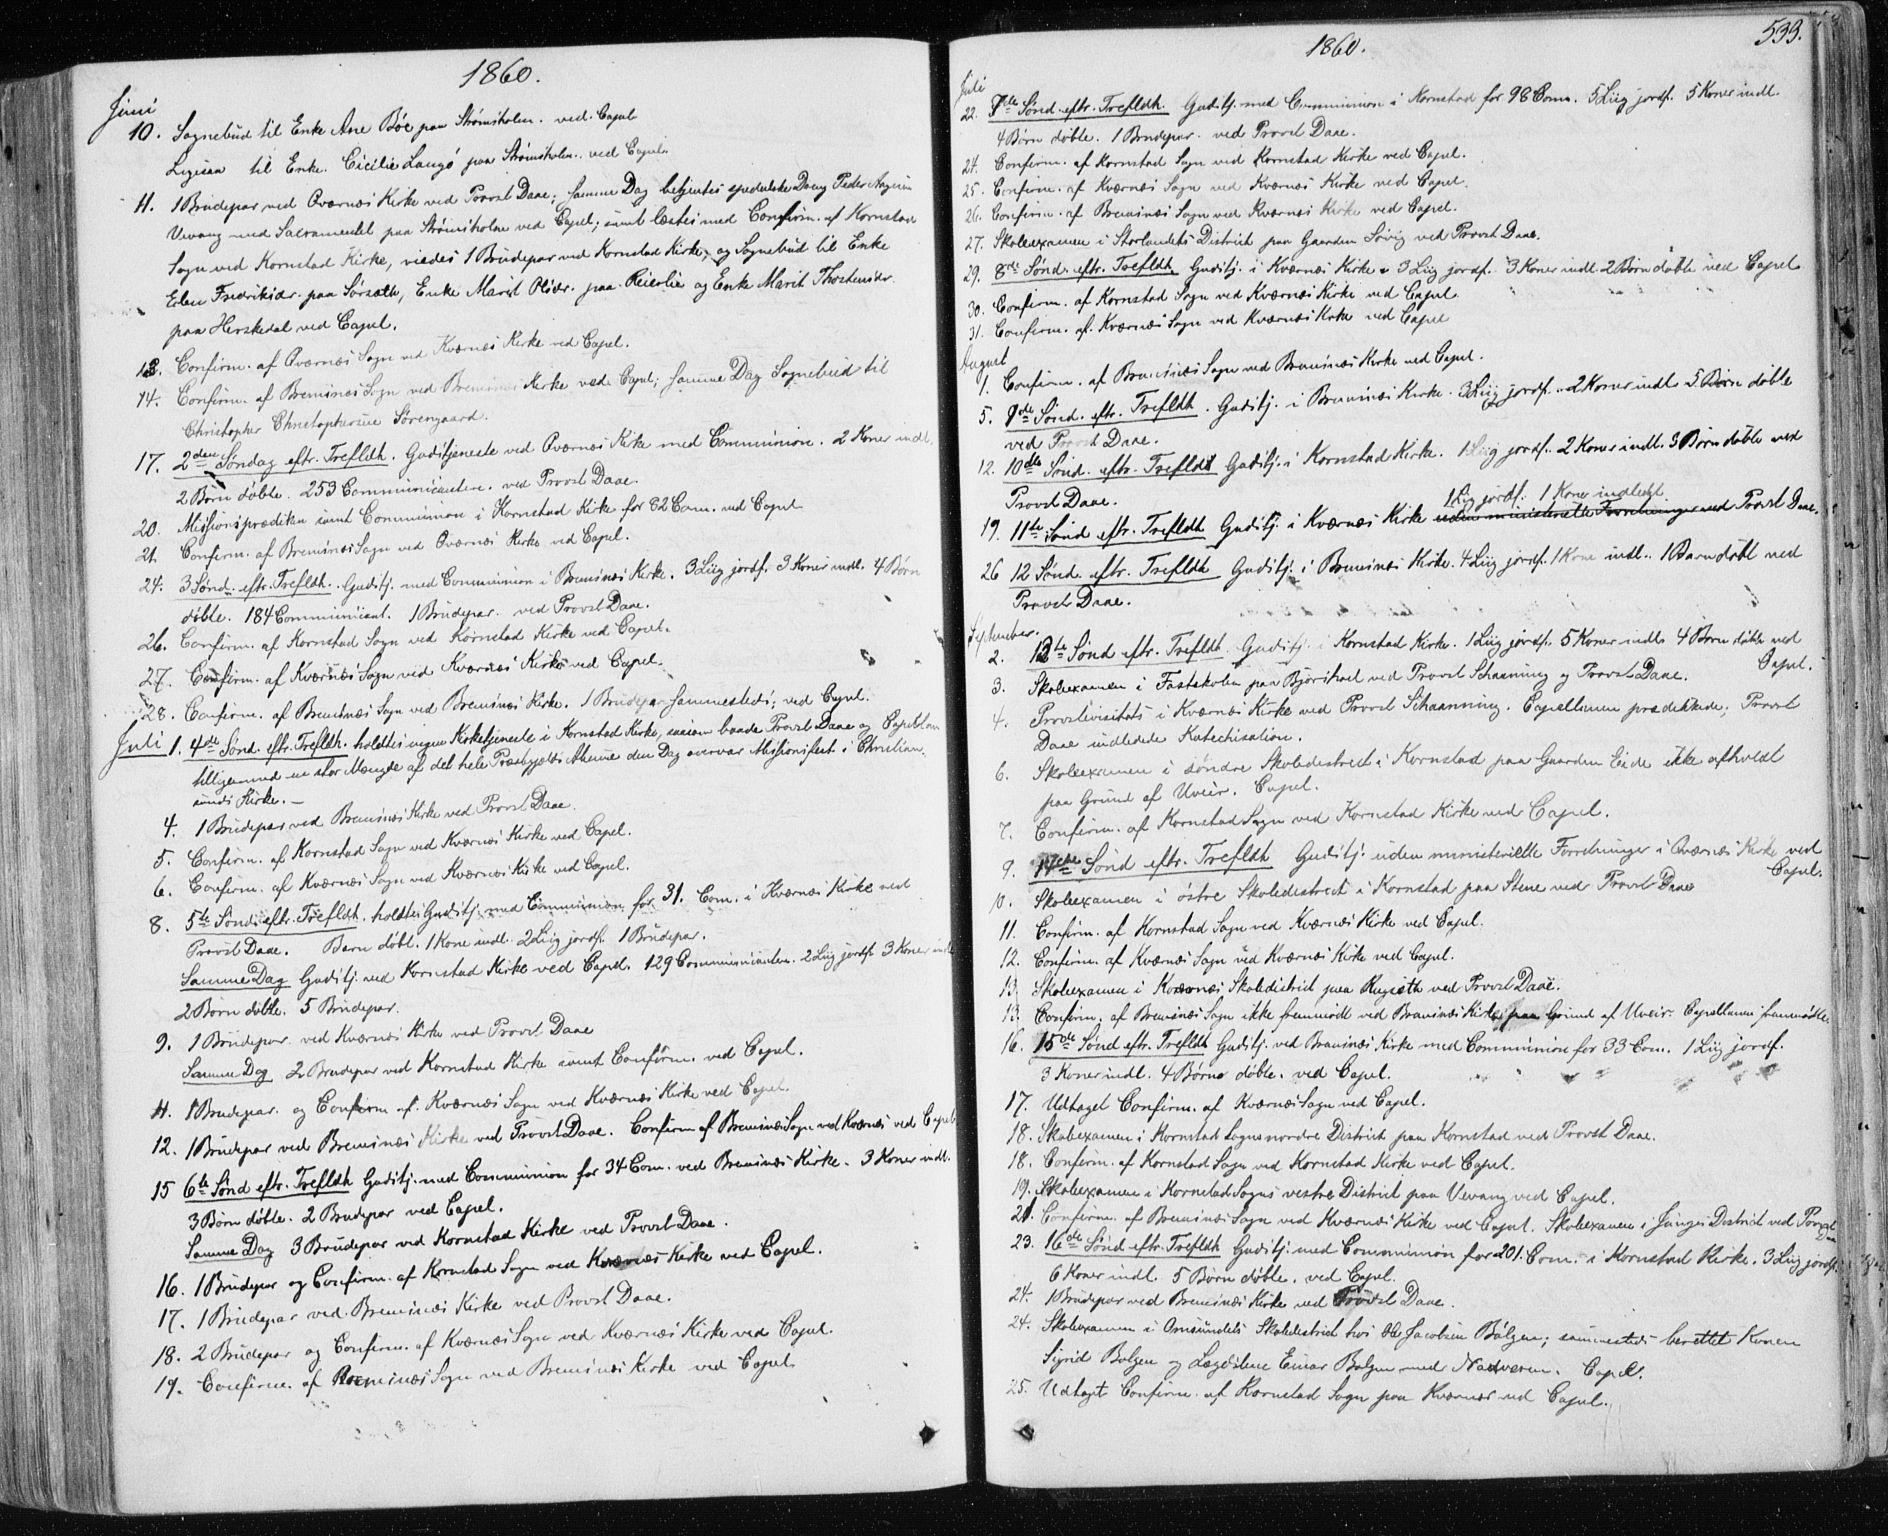 1860.
Juni
10. Sognebud til Enke Ane Böe paa Strömsholm. ved Capel.
til Enke Cicilie Langö paa Strömsholm. ved Capel.
11. 1 Brudepar ved Qværnæs Kirke ved Provst Daae; samme Dag betjentes spedalske Dreng Peder
Vevang med Sacramentet paa Strömsholm ved Capel; samt læstes med Confirm. af Kornstad
Sogn ved Kornstad Kirke, viedes 1 Brudepar ved Kornstad Kirke, og Sognebud til Enke
Fredriksdr. paa Sörsæth, Enke Marit Olsdr. paa Reierlie og Enke Marit Thostensdr.
paa Herskedal ved Capel.
13. Confirm. af Qværnæs Sogn ved Kværnæs Kirke ved Capel.
14. Confirm. af Bremsnæs Sogn ved Bremsnæs Kirke ved Capel; samme Dag Sognebud til
Christopher Christophersen Sörengaard.
17. 2den Söndag eftr. Trefldh. Gudstjeneste ved Qværnæs Kirke med Communion. 2 Koner indl.
2 Börn döbte. 253 Communicantere. ved Provst Daae.
20. Missionsprædiken samt Communion i Kornstad Kirke for 82 Com. ved Capel
21. Confirm. af Bremsnæs Sogn ved Qværnæs Kirke ved Capel.
24. 3 Sönd. eftr. Trefldh. Gudstj. med Communion i Bremsnæs Kirke. 3 Liig jordf. 3 Koner indl. 4 Börn
döbte. 184 Communicant. 1 Brudepar. ved Provst Daae.
26. Confirm. af Kornstad Sogn ved Kornstad Kirke ved Capel.
27. Confirm. af Kværnæs Sogn ved Kværnæs Kirke ved Capel.
28. Confirm. af Bremsnæs Sogn ved Bremsnæs Kirke. 1 Brudepar sammesteds; ved Capel.
Juli 1. 4de Sönd. eftr. Trefldh. holdtes ingen Kirketjeneste i Kornstad Kirke, saasom baade Provst Daae og Capellan
tilligemed en stor Mængde af det hele Præstegjælds Almue den Dag overvar Missionsfest i Christian-
sunds Kirke.—
4. 1 Brudepar ved Bremsnæs Kirke ved Provst Daae.
5. Confirm. af Kornstad Sogn ved Kværnæs Kirke ved Capel.
6. Confirm. af Kværnæs Sogn ved Kværnæs Kirke ved Capel.
8. 5te Sönd. eftr. Trefldh. holdtes Gudstj. med Communion for 31. Com. i Kværnæs Kirke ved
Provst Daae. Barn döbt. 1 Kone indl. 2 Liig jordf. 1 Brudepar.
Samme Dag Gudstj. ved Kornstad Kirke ved Capel. 129 Communicanter. 2 Liig jordf. 3 Koner indl.
2 Börn döbte. 5 Brudepar.
9. 1 Brudepar ved Kværnæs Kirke ved Provst Daae
Samme Dag 2 Brudepar ved Kornstad Kirke samt Confirm. ved Capel.
11. 1 Brudepar. og Confirm. af Kværnæs Sogn ved Kværnæs Kirke ved Capel.
12. 1 Brudepar ved Bremsnæs Kirke ved Provst Daae. Confirm af Bremsnæs Sogn ved Kværnæs ved Capel
15 6te Sönd eftr. Trefldh Gudstj. med Communion for 34 Com. ved Bremsnæs Kirke. 3 Koner indl.
3 Börn döbte. 2 Brudepar ved Capel.
Samme Dag 3 Brudepar ved Kornstad Kirke ved Provst Daae.
16. 1 Brudepar og Confirm. af Kornstad Sogn ved Kværnæs Kirke ved Capel.
17. 1 Brudepar ved Bremsnæs Kirke ved Provst Daae.
18. 2 Brudepar og Confirm. af Kværnæs Sogn ved Kværnæs Kirke ved Capel.
19. Confirm. af Bremsnæs Sogn ved Bremsnæs Kirke ved Capel.
1860.
533.
Juli
22. 7de Sönd. eftr. Trefldh. Gudstj. med Communion i Kornstad for 98 Com. 5 Liig jordf. 5 Koner indl.
4 Börn döbte. 1 Brudepar. ved Provst Daae.
24. Confirm. af Kornstad Sogn ved Kornstad Kirke ved Capel.
25. Confirm. af Kværnæs Sogn ved Kværnæs Kirke ved Capel.
26. Confirm. af Bremsnæs Sogn ved Kværnæs Kirke ved Capel.
27. Skoleexamen i Storlandets District paa Gaarden Sövig ved Provst Daae.
29. 8de Sönd. eftr. Trefldh. Gudstj. i Kværnæs Kirke. 3 Liig jordf. 3 Koner indl. 2 Börn döbte ved Capel.
30. Confirm. af Kornstad Sogn ved Kværnæs Kirke ved Capel
31. Confirm. af Kværnæs Sogn ved Kværnæs Kirke ved Capel
August
1. Confirm. af Bremsnæs Sogn ved Bremsnæs Kirke ved Capel.
5. 9de Sönd. eftr. Trefldh. Gudstj. i Bremsnæs Kirke. 3 Liig jordf. 2 Koner indl. 5 Börn döbte
ved Provst Daae.
12. 10de Sönd. eftr. Trefldh Gudstj. i Kornstad Kirke. 1 Liig jordf. 2 Koner indl. 3 Börn döbte ved
Provst Daae.
1 Liig jordf. 1 Kone indledt.
19. 11te Sönd eftr. Trefldh Gudstj. i Kværnæs Kirke uden ministerielle Forretninger ved Provst Daae.
26 12 Sönd. eftr. Trefldh Gudstj. i Bremsnæs Kirke. 4 Liig jordf. 1 Kone indl. 1 Barn döbt ved
Provst Daae.
September.
2. 13te Sönd eftr. Trefldh. Gudstj. i Kornstad Kirke. 1 Liig jordf. 5 Koner indl. 4 Börn döbte ved
Capel.
3. Skoleexamen i Fastskolen paa Björshart ved Provst Schaanning og Provst Daae.
4. Provstevisitats i Kværnæs Kirke ved Provst Schaanning. Capellanen prædikede; Provst
Daae indledede Katechisation.
6. Skoleexamen i söndre Skoledistrict i Kornstad paa Gaarden Eide ikke afholdt
paa Grund af Uveir. Capel.
7. Confirm. af Kornstad Sogn ved Kornstad Kirke ved Capel.
9. 14de Sönd eftr. Trefldh Gudstj. uden ministerielle Forretninger i Qværnæs Kirke ved
Capel.
10. Skoleexamen i östre Skoledistrict i Kornstad paa Stene ved Provst Daae
11. Confirm. af Kornstad Sogn ved Kværnæs Kirke ved Capel.
12. Confirm. af Kværnæs Sogn ved Kværnæs Kirke ved Capel.
13. Skoleexamen i Kværnæs Skoledistrict paa ved Provst Daae.
13. Confirm. af Bremsnæs Sogn ikke fremmödt ved Bremsnæs Kirke paa Grund af Uveir. Capellanen fremmödte.
16. 15de Sönd eftr. Trefldh Gudstj. ved Bremsnæs Kirke med Communion for 33 Com. 1 Liig jordf.
3 Koner indl. 4 Börn döbte. ved Capel.
17. Udtaget Confirm. af Kværnæs Sogn ved Capel.
18. Skoleexamen i Kornstad Sogns nordre District paa Kornstad ved Provst Daae.
18. Confirm. af Kornstad Sogn ved Kornstad Kirke ved Capel.
19. Skoleexamen i Kornstad Sogns vestre District paa Vevang ved Capel.
21. Confirm. af Bremsnæs Sogn ved Kværnæs Kirke ved Capel. Skoleexamen i District ved Provst
Daae
23. 16de Sönd eftr. Trefldh Gudstj. med Communion for 201. Com. i Kornstad Kirke. 3 Liig jordf.
6 Koner indl. 5 Börn döbte. ved Capel.
24. 1 Brudepar ved Bremsnæs Kirke ved Provst Daae.
24. Skoleexamen i Omsundets Skoledistrict hos Ole Jacobsen Bolgen; sammesteds berettet Konen
Sigrid Bolgen og Lægdslem Einar Bolgen med Nadveren. Capel.
25. Udtaget Confirm. af Kornstad Sogn paa Kværnæs ved Capel.